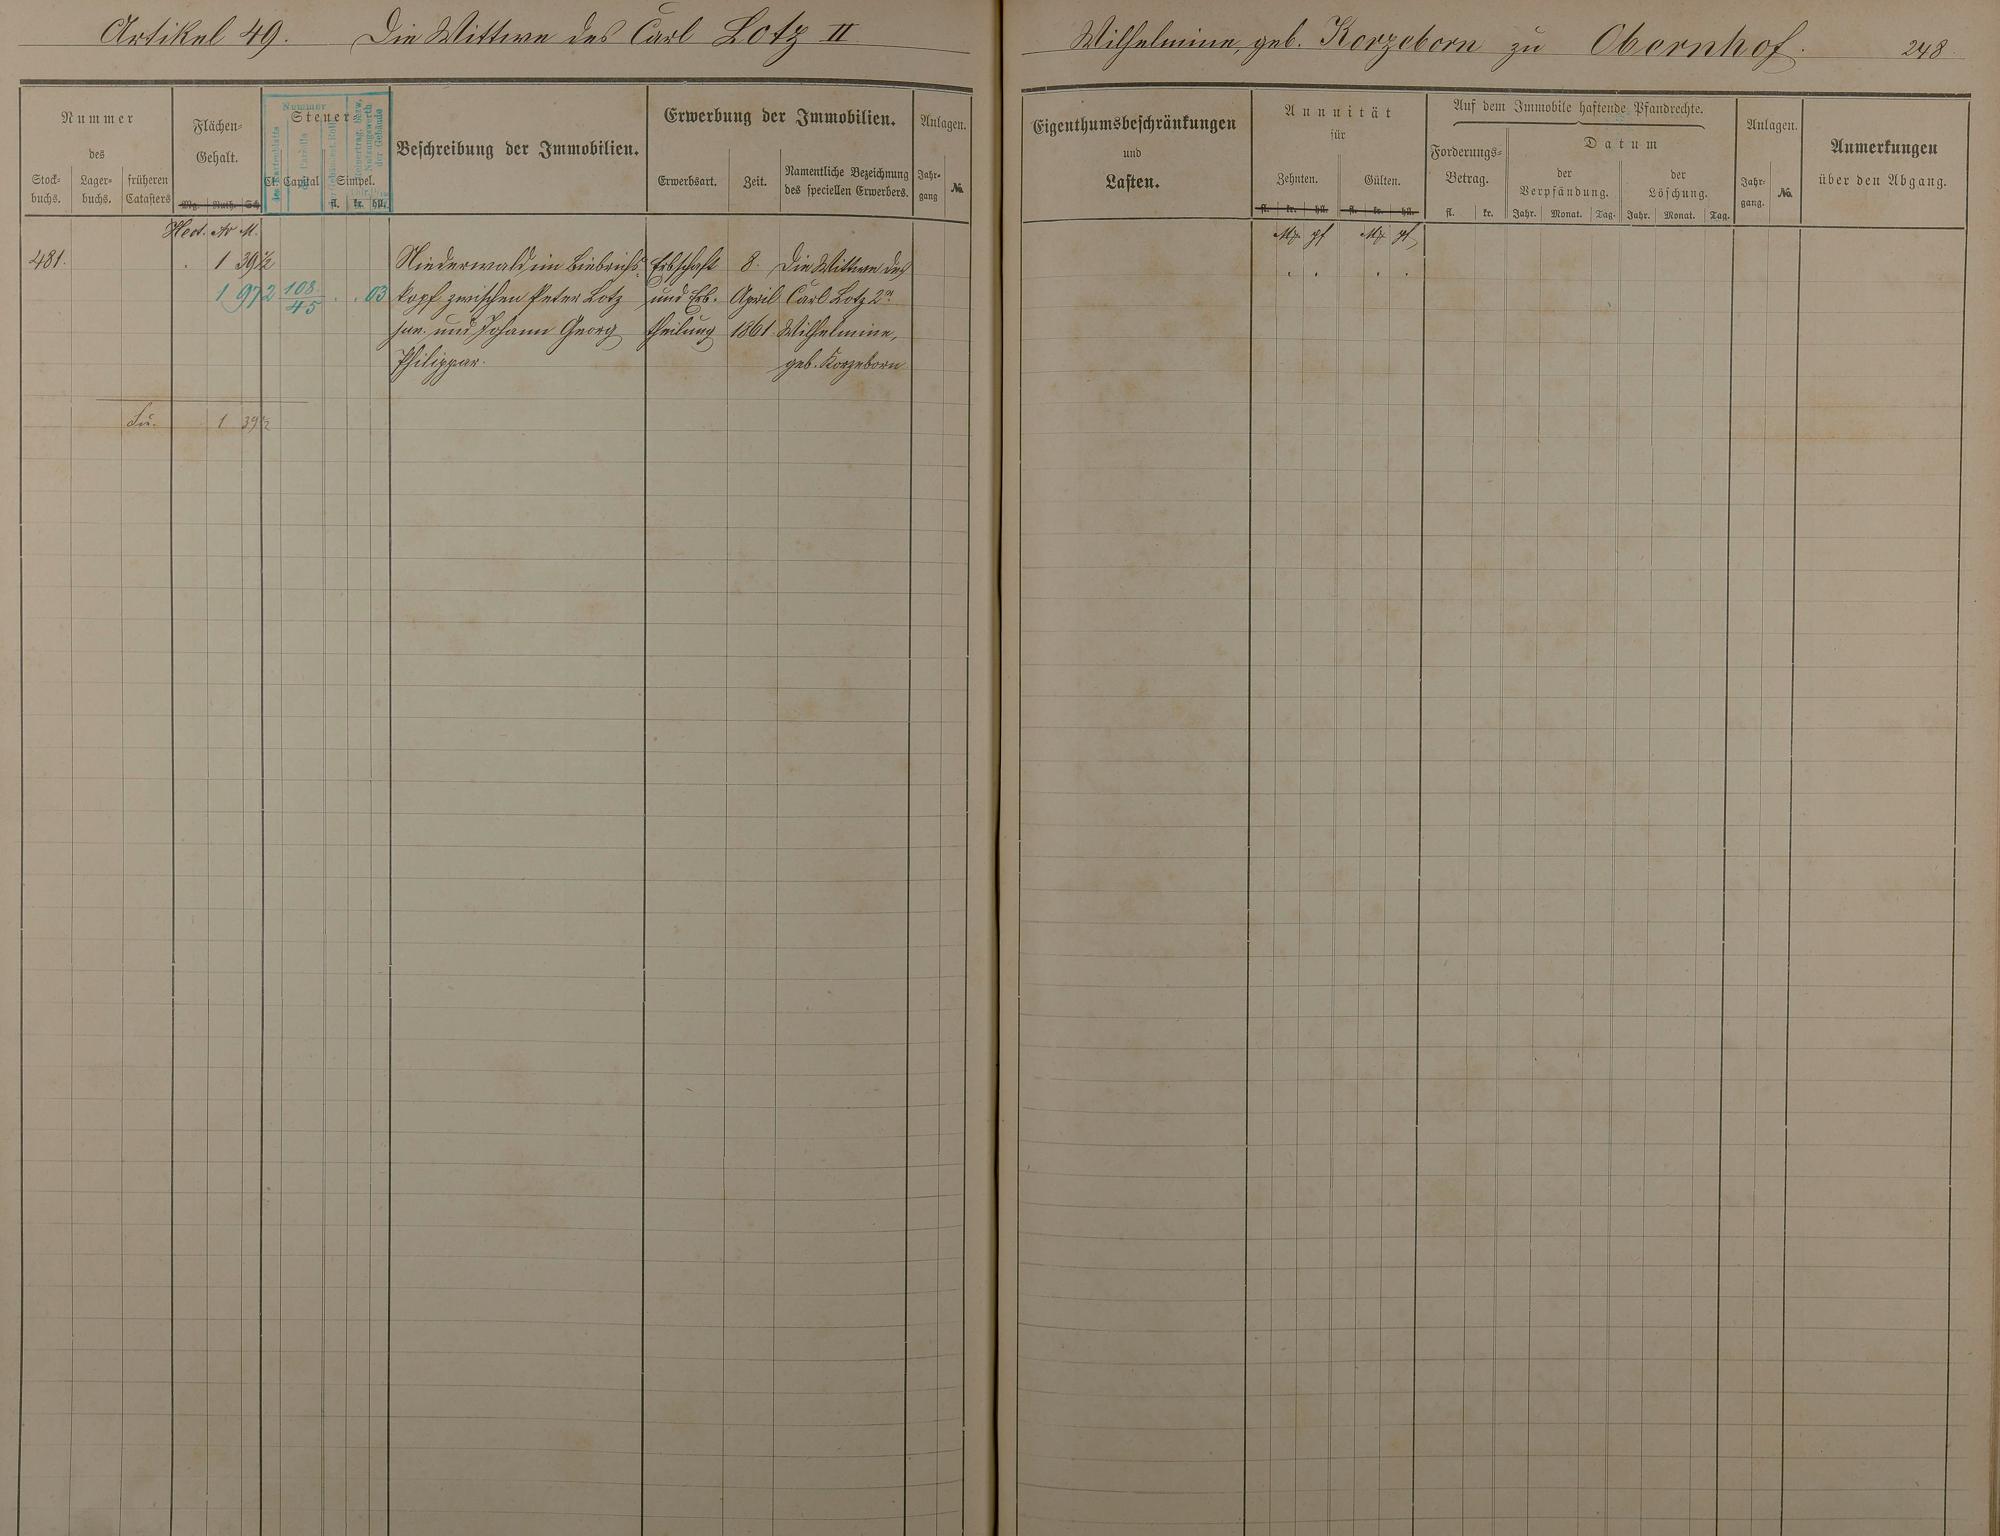 Artikel 49. Die Wittwe des Carl Lotz II
Wilhelmine, geb. Korzeborn zu Obernhof. 248
Nummer
des
Stock-
buchs.
Lager-
buchs.
früheren
Catasters
Flächen-
Gehalt.
Mg. Ruth. Sch.
Steuer-
Cl. Capital Simpel.
fl. kr. hll.
Nummer
des Kartenblatts
der Parzelle
der Gebäudest. Rolle
Reinertrag, bezw.
Nutzungswerth
der Gebäude
Beschreibung der Immobilien.
Erwerbung der Immobilien.
Erwerbsart.
Zeit.
Namentliche Bezeichnung
des speciellen Erwerbers.
Anlagen.
Jahr-
gang
No.
Eigenthumsbeschränkungen
und
Lasten.
Annuität
für
Zehnten. Gülten.
fl. kr. hll. fl. kr. hll.
Auf dem Immobile haftende Pfandrechte.
Forderungs-
Betrag.
fl. kr.
Datum
der
Verpfändung.
Jahr. Monat. Tag.
der
Löschung.
Jahr. Monat. Tag.
Anlagen.
Jahr-
gang.
No.
Anmerkungen
über den Abgang.
Hect. Ar M.
Mk pf Mk pf
481. . 1 39½ Niederwald im Biebrichs- Erbschaft 8. Die Wittwe des
1 972 108/45 . . 03 kopf zwischen Peter Lotz und Erb- April Carl Lotz 2r
jun. und Johann Georg theilung 1861 Wilhelmine,
Philippar. geb. Korzeborn
1 39½